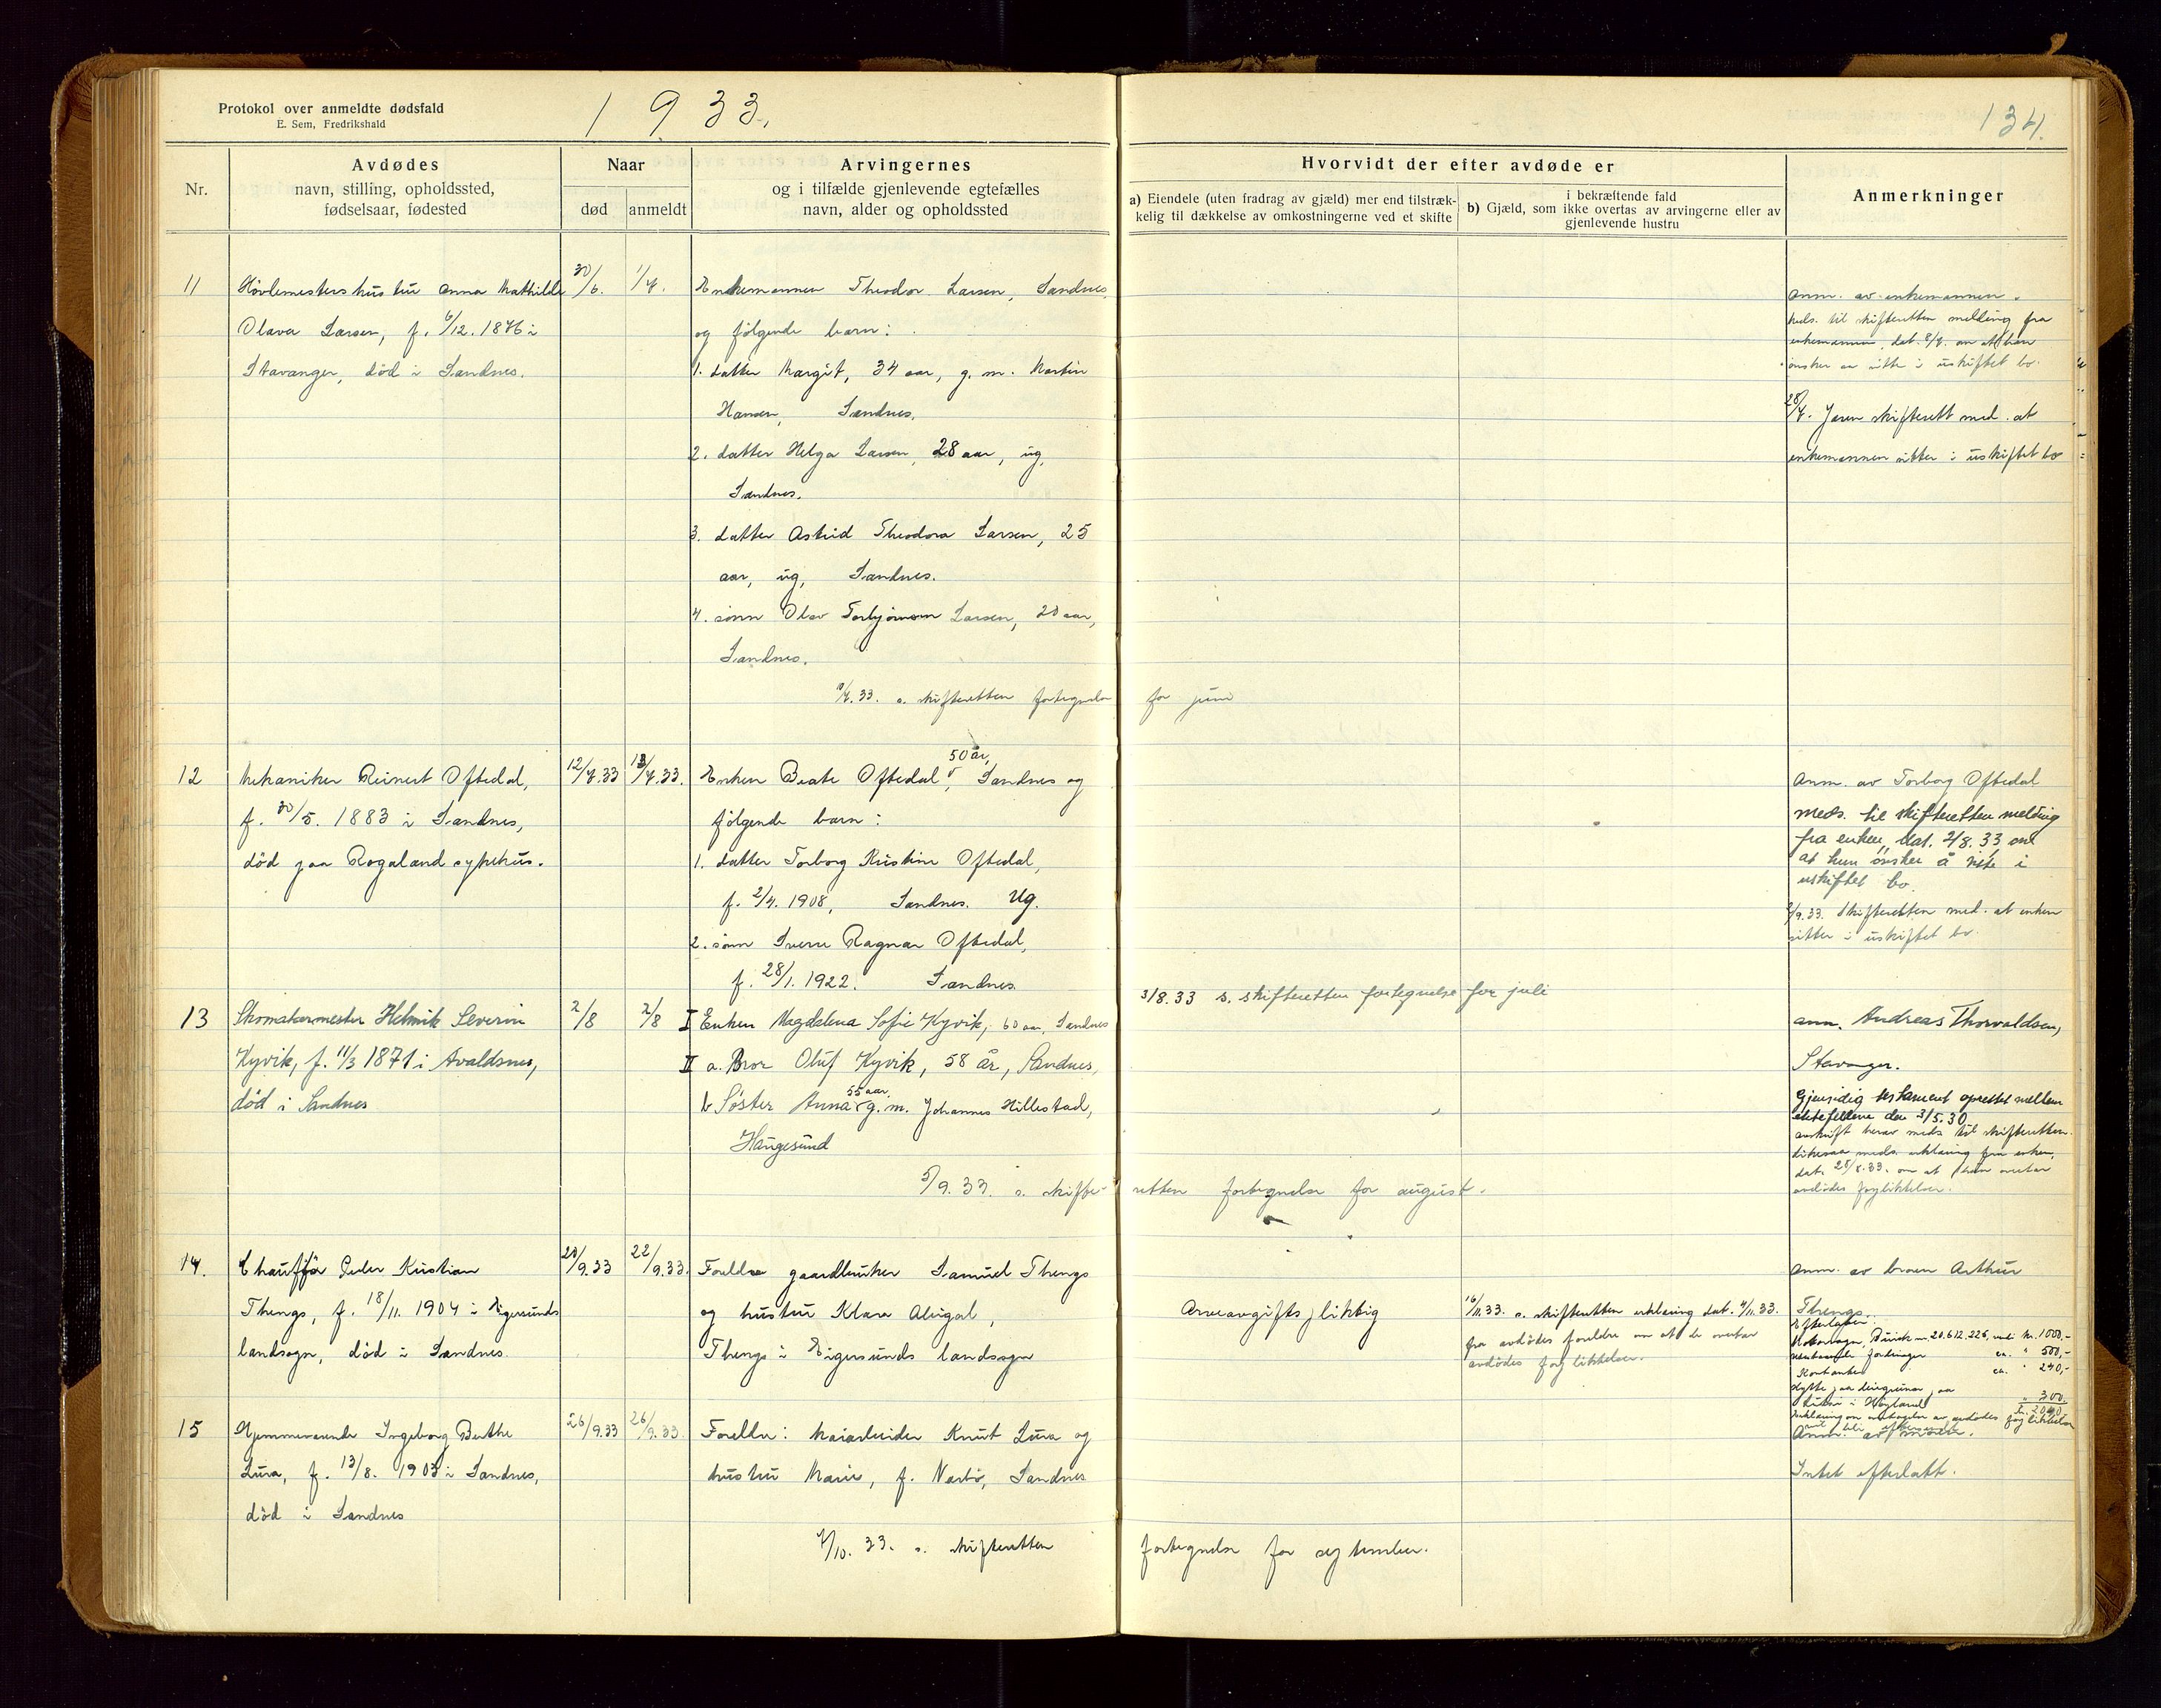 Protokol over anmeldte dødsfald
E. Sem, Fredrikshald
1933.
134.
Nr.
Avdødes
navn, stilling, opholdssted,
fødselsaar, fødested
Naar
død
anmeldt
Arvingernes
og i tilfælde gjenlevende egtefælles
navn, alder og opholdssted
Hvorvidt der efter avdøde er
a) Eiendele (uten fradrag av gjæld) mer end tilstræk-
kelig til dækkelse av omkostningerne ved et skifte
i bekræftende fald
b) Gjæld, som ikke overtas av arvingerne eller av
gjenlevende hustru
Anmerkninger
11
Høvlemesters hustru Anna Mathilde
Olava Larsen, f. 6/12. 1876 i
Stavanger, død i Sandnes.
30/6.
1/7.
Enkemannen Theodor Larsen, Sandnes,
og følgende barn:
1. datter Margit, 34 aar, g. m. Martin
Hansen, Sandnes.
2. datter Helga Larsen, 28 aar, ug,
Sandnes.
3. datter Astrid Theodora Larsen, 25
aar, ug, Sandnes.
4. sønn Olav Torbjørnsen Larsen, 20 aar,
Sandnes.
/7.33. s. skifteretten fortegnelse for juni
Anm. av enkemannen.
Meds. til skifteretten melding fra
enkemannen, dat. 8/7. om at han
ønsker aa sitte i uskiftet bo.
28/7. Jæren skifterett med. at
enkemannen sitter i uskiftet bo
12
Mekaniker Reinert Oftedal,
f. 30/5. 1883 i Sandnes,
død paa Rogaland sykehus.
12/7.33
13/7.33.
Enken Beate Oftedal, 50 år, Sandnes og
følgende barn:
1. datter Torborg Kristine Oftedal,
f. 2/4. 1908, Sandnes. Ug.
2. sønn Sverre Ragnar Oftedal,
f. 28/1. 1922. Sandnes
3/8.33 s. skifteretten fortegnelse for juli
Anm. av Torborg Oftedal
meds. til skifteretten melding
fra enken, dat. 2/8.33 om
at hun ønsker å sitte i
uskiftet bo.
/9.33. Skifteretten med. at enken
sitter i uskiftet bo.
13
Skomakermester Helmik Severin
Kyvik, f. 11/3 1871 i Avaldsnes,
død i Sandnes
2/8
2/8
I Enken Magdalena Sofie Kyvik, 60 aar, Sandnes
II a. Bror Oluf Kyvik, 58 år, Sandnes,
b Søster Anna 55 aar, g.m. Johannes Hillestad,
Haugesund
5/9.33. s. skifteretten fortegnelse for august.
ann. Andreas Thorvaldsen,
Stavanger.
Gjensidig testament oprettet mellem
ektefellene den 3/5.30
avskrift herav meds til skifteretten.
Likesaa meds. erklæring fra enken,
dat. 28/8.33. om at hun overtar
avdødes forpliktelser.
14.
Chauffør Peder Kristian
Thengs, f. 18/11. 1904 i Eigersunds
landsogn, død i Sandnes.
20/9.33
22/9.33.
Foreldre gaardbruker Samuel Thengs
og hustru Klara Abigal,
Thengs i Eigersunds landsogn
Arveavgiftspliktig
16/11.33. s. skifteretten erklæring dat. 4/11.33.
fra avdødes foreldre om at de overtar
avdødes forpliktelser.
Anm. av broren Arthur
Thengs.
Efterlater:
Motorvogn, Buick nr. 20.612.226, verdi kr. 1000,-
utestaaende fordringer ca. " 500,-
Kontanter ca. " 240,-
Hytte paa leiegrunn paa
i Høyland " 300,
kr. 2040,-
Erklæring om overtagelse av avdødes forpliktelser
15
Hjemmeværende Ingeborg Berthe
Lura, f. 13/8. 1903 i Sandnes,
død i Sandnes
26/9.33
26/9.33.
Foreldre: Murarbeider Knut Lura og
hustru Marie, f. Nærbø, Sandnes
/10.33. s. skifteretten fortegnelse for september.
Anm. av moren.
Intet efterlatt.